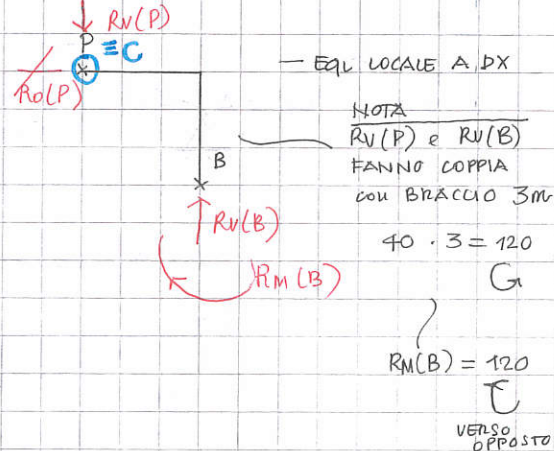 Rv(P)
P ≡ C
Ro(P)
B
Rv(B)
RM(B)
— EQL LOCALE A DX
NOTA
Rv(P) e Rv(B)
FANNO COPPIA
con BRACCIO 3m
40 · 3 = 120
RM(B) = 120
VERSO
OPPOSTO